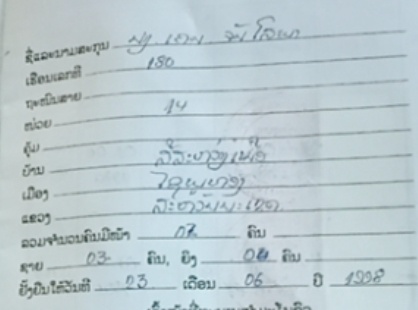 ຊື່ແລະນາມສະກຸນ
ເຮືອນເລກທີ 180
ຖະໜົນສາຍ
ໜ່ວຍ 14
ຄຸ້ມ
ບ້ານ ສີສະຫວ່າງເໜືອ
ເມືອງ ໄຊພູທອງ
ແຂວງ ສະຫວັນນະເຂດ
ລວມຈຳນວນຄົນມີໜ້າ 07 ຄົນ
ຊາຍ 03 ຄົນ, ຍິງ 04 ຄົນ
ຍັ້ງຢືນໃຫ້ວັນທີ 23 ເດືອນ 06 ປີ 1998